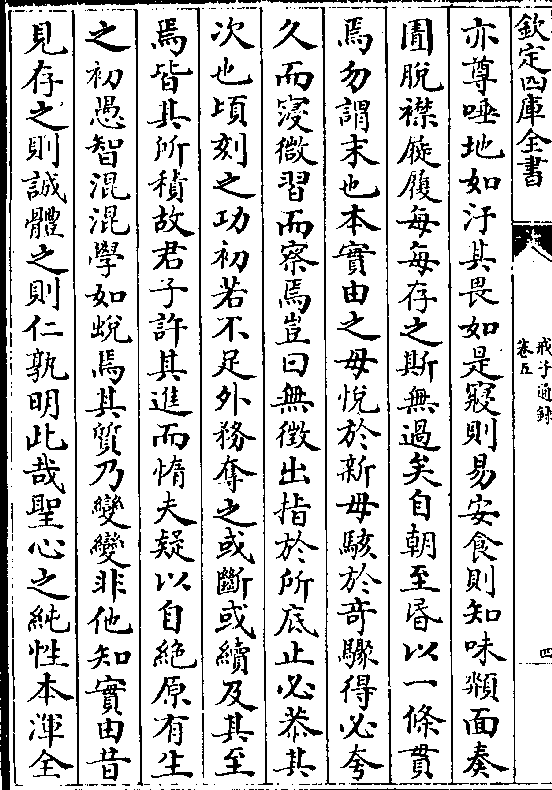 欽定四庫全書
戒子通録
卷五
四
亦尊唾地如汙其畏如是寢則易安食則知味頮面奏
圊脫襟屣履每每存之斯無過矣自朝至昬以一條貫
焉勿謂末也本實由之毋悅於新毋駭於竒驟得必夸
久而寖微習而察焉豈曰無徴出指於所底止必恭其
次也頃刻之功初若不足外務奪之或斷或續及其至
焉皆其所積故君子許其進而惰夫疑以自絶原有生
之初愚智混混學如蛻焉其質乃變變非他知實由昔
見存之則誠體之則仁孰明此哉聖心之純性本渾全